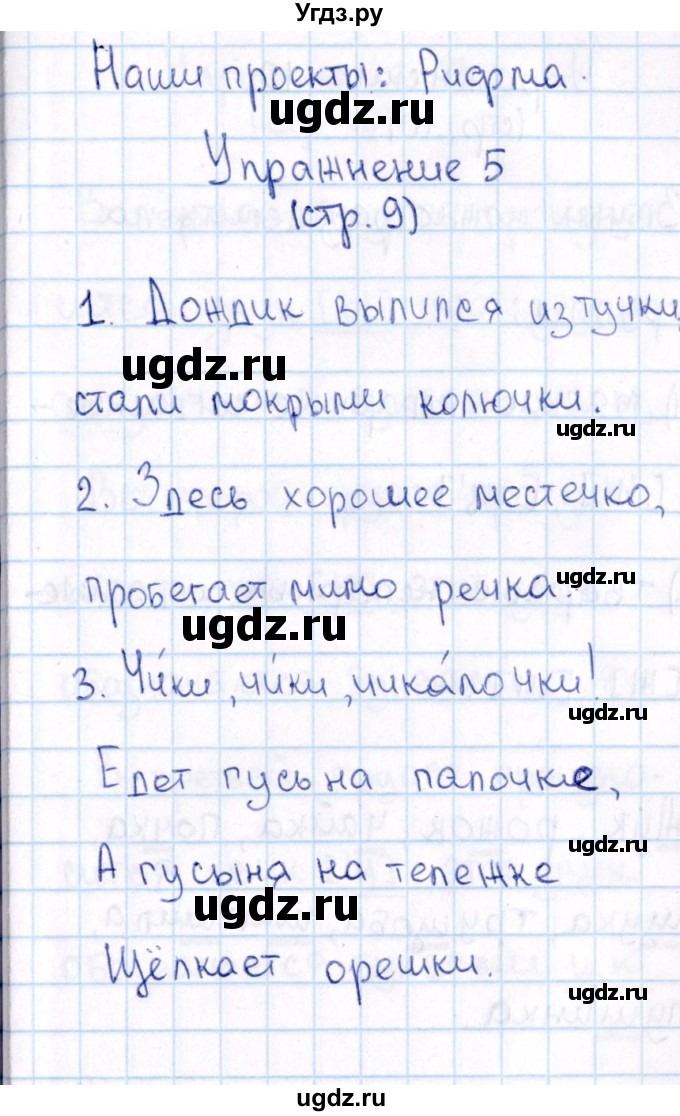 Угдз.ру
Наши проекты: Рифма.
ugdz.ru
Упражнение 5
(стр. 9)
1. Дождик вылился из тучки,
ugdz.ru
стали мокрыми колючки.
ugdz.ru
2. Здесь хорошее местечко,
ugdz.ru
пробегает мимо речка.
ugdz.ru
3. Чи́ки, чи́ки, чика́лочки!
ugdz.ru
Едет гусь на палочке,
ugdz.ru
А гусыня на тележке
ugdz.ru
Щёлкает орешки.
ugdz.ru
ugdz.ru